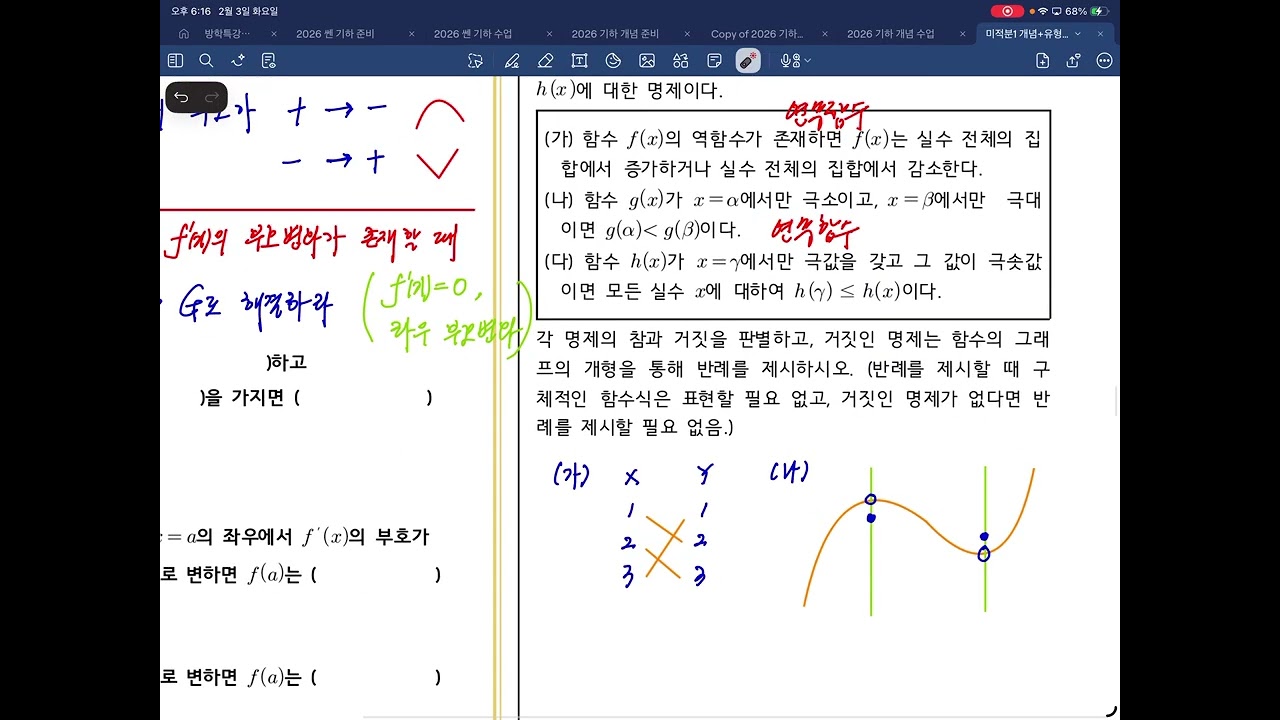 오후 6:16 2월 3일 화요일
68%
방학특강…
2026 쎈 기하 준비
2026 쎈 기하 수업
2026 기하 개념 준비
Copy of 2026 기하…
2026 기하 개념 수업
미적분1 개념+유형…
부호가 + → −
− → +
f'(x)의 부호변화가 존재할 때
G로 해결하라
( f'(x)=0,
좌우 부호변화 )
)하고
)을 가지면 ( )
x=a의 좌우에서 f′(x)의 부호가
로 변하면 f(a)는 ( )
로 변하면 f(a)는 ( )
h(x)에 대한 명제이다.
연속함수
(가) 함수 f(x)의 역함수가 존재하면 f(x)는 실수 전체의 집
합에서 증가하거나 실수 전체의 집합에서 감소한다.
(나) 함수 g(x)가 x=α에서만 극소이고, x=β에서만 극대
이면 g(α)< g(β)이다. 연속함수
(다) 함수 h(x)가 x=γ에서만 극값을 갖고 그 값이 극솟값
이면 모든 실수 x에 대하여 h(γ) ≤ h(x)이다.
각 명제의 참과 거짓을 판별하고, 거짓인 명제는 함수의 그래
프의 개형을 통해 반례를 제시하시오. (반례를 제시할 때 구
체적인 함수식은 표현할 필요 없고, 거짓인 명제가 없다면 반
례를 제시할 필요 없음.)
(가) X Y
1 1
2 2
3 3
(나)